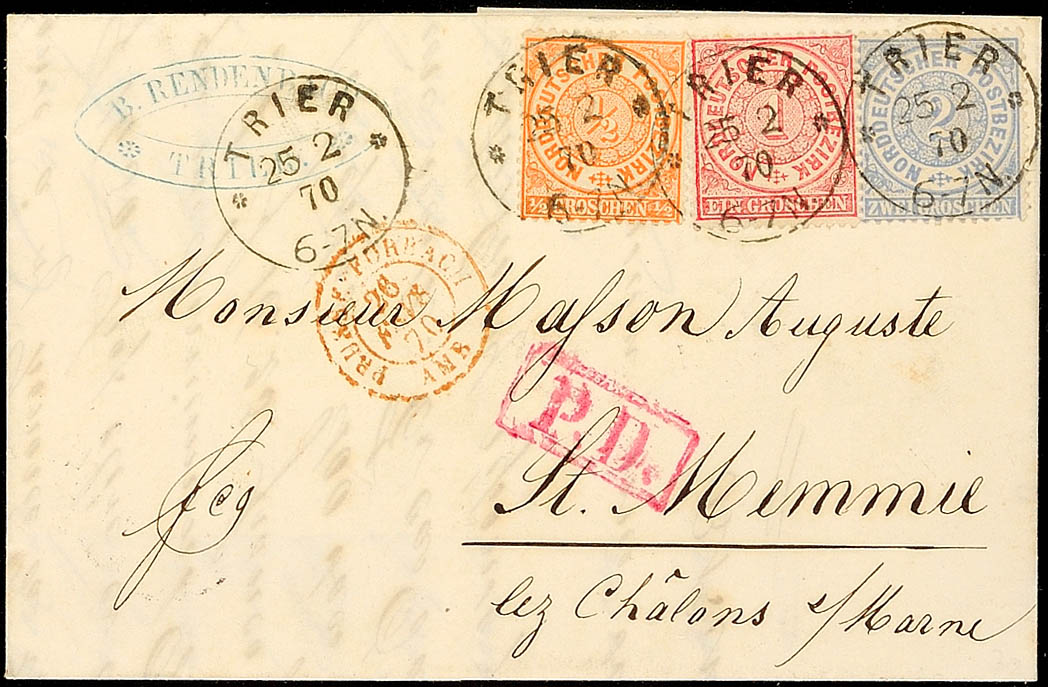 B. RENDENB
TRIER
TRIER
25 2
70
6-7N.
TRIER
25 2
70
6-7N
NORDDEUTSCHER POSTBEZIRK
1/2
1/2 GROSCHEN 1/2
TRIER
25 2
70
6-7N
NORDDEUTSCHER POSTBEZIRK
1
EIN GROSCHEN
TRIER
25 2
70
6-7N.
NORDDEUTSCHER POSTBEZIRK
2
ZWEI GROSCHEN
PRUSSE FORBACH
26
FEVR
70
AMB
Monsieur Masson Auguste
P.D.
St. Memmie
fco
lez Châlons s/Marne